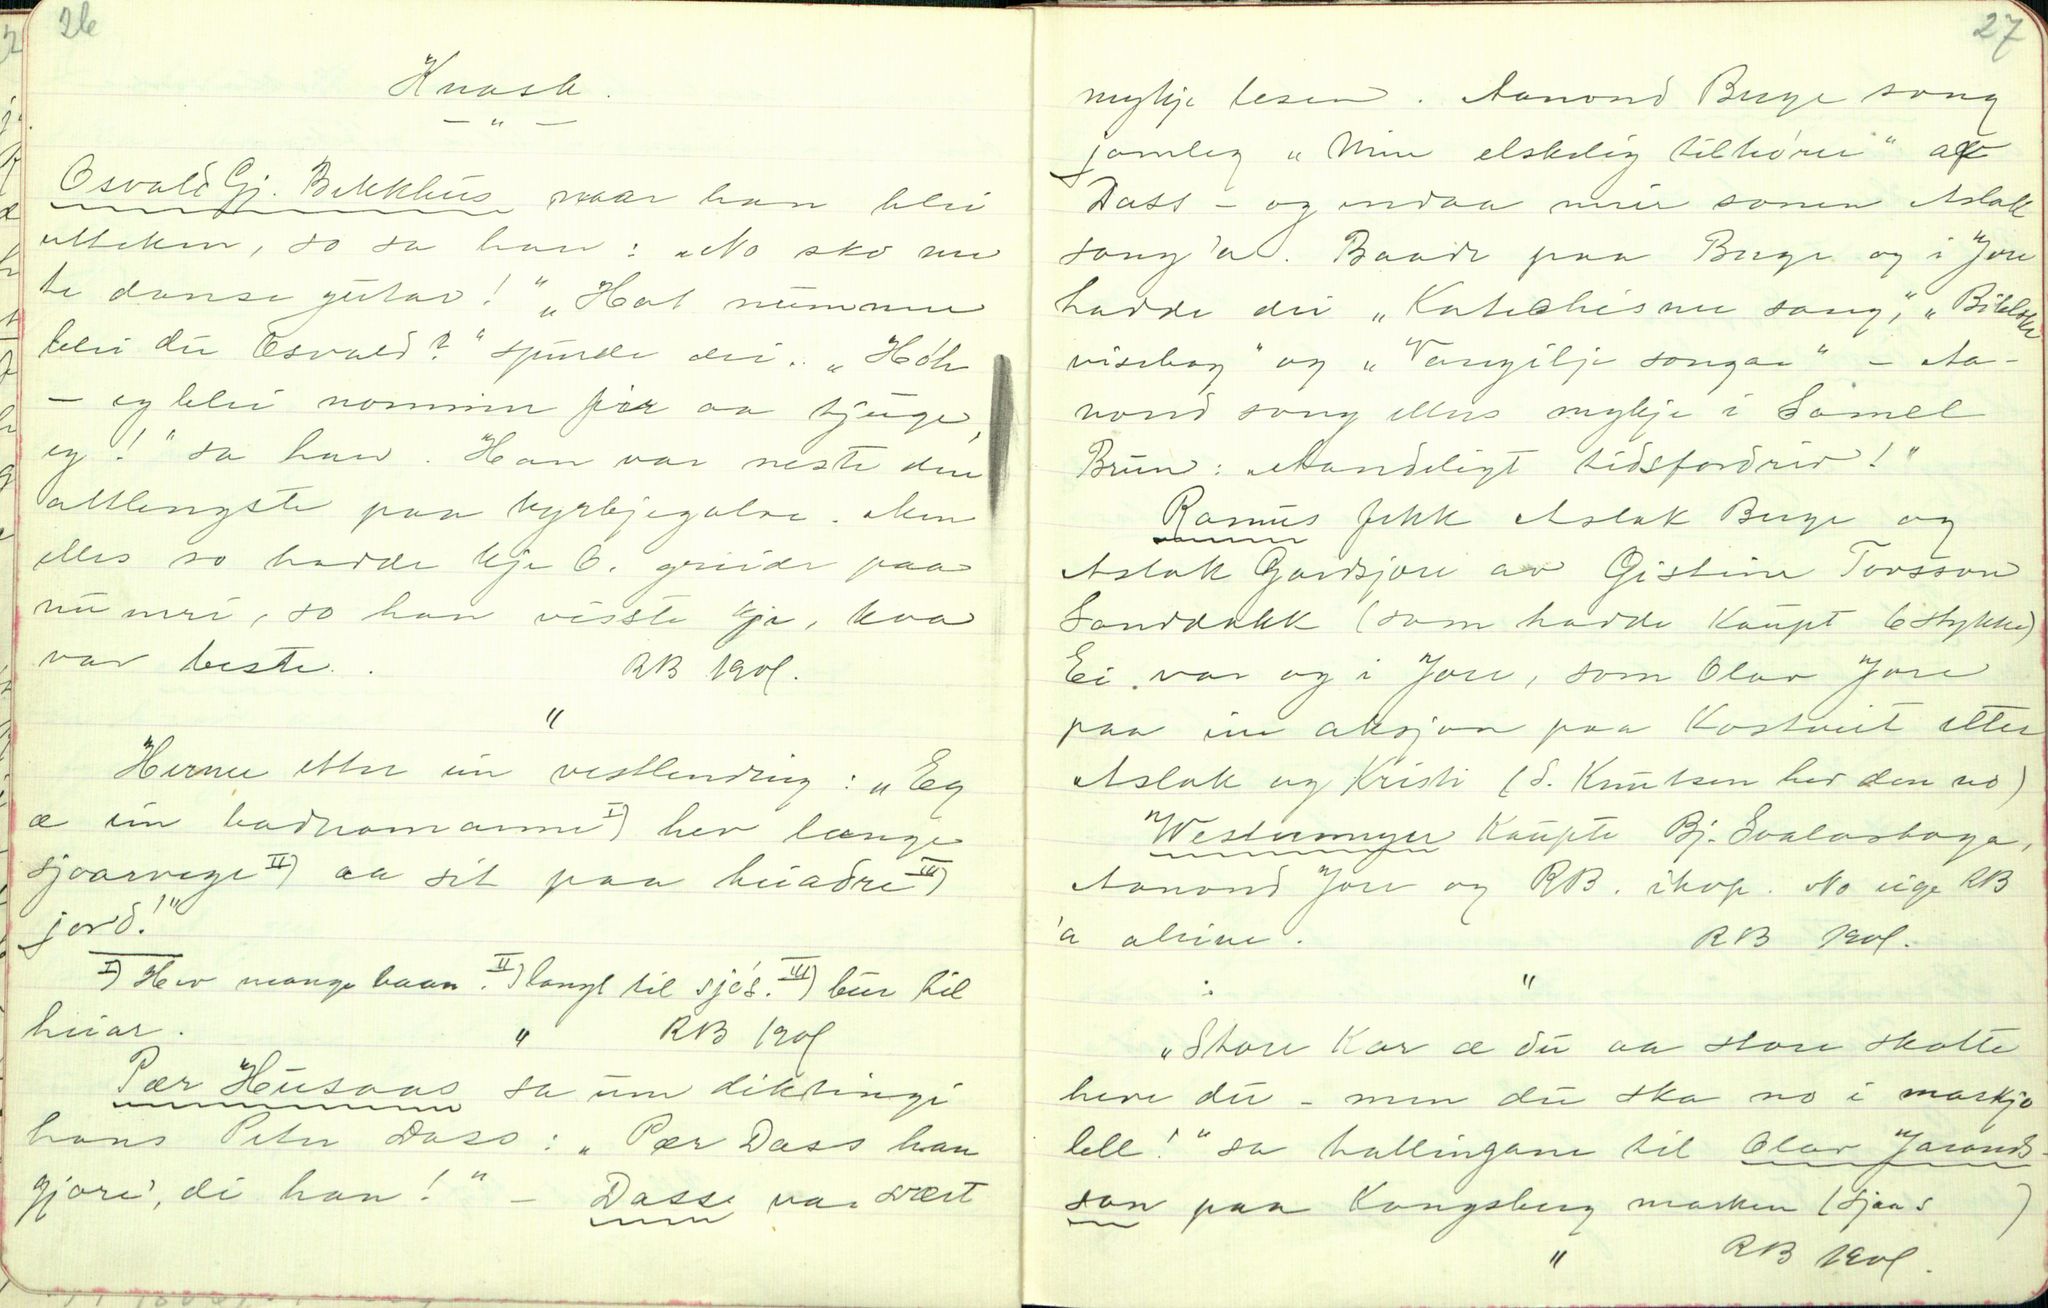 26
Knask.
— " —
Osvald Gj. Bekkhus naar han blei
utteken, so sa han: „No sko me
te danse gutar!" „Hot nummer
blei du Osvald?" spurde dei. „Hóh
— eg blei nommer fir aa tjuge,
eg!" sa han. Han var neste den
attlengste paa kyrkjegolve. Men
elles so hadde kje O. greide paa
numri, so han visste kje, kva
var beste. RB 1901.
"
Hermer etter ein vestlending: „Eg
æ ein badnamanne I) hev lange
sjoarvege II) aa sit paa heiadre III)
jord!"
I) Hev mange baan. II) langt til sjós. III) bur til
heiar. " RB 1901
Pær Husaas sa um diktingi
hans Peter Dass: „Pær Dass han
gjore', di han!" — Dasse var svært
27
mykje lesen. Aanond Berge song
jamleg „Min elskelig tilhører" af
Dass — og endaa meir sonen Aslak
song 'a. Baade paa Berge og i Jore
hadde dei „Katechismesong", „Bibelsk
visebog" og „Vangilje songar" — Aa-
nond song elles mykje i Samel
Brun: „Aandeligt tidsfordriv!"
Rasmus fekk Aslak Berge og
Aslak Gardsjore av Gisteine Torsson
Sanddokk (som hadde kaupt 6 stykke)
Ei var og i Jore, som Olav Jore
paa ein aksjon paa Kostveit etter
Aslak og Kristi (S. Knutsen hev den no)
Westermeyer kaupte Bj. Svalastoga,
Aanond Jore og RB. ihop. No eige RB
'a aleine. RB 1901.
"
„Store Kar æ du aa store skatte
heve du — men du ska no i markjo
lell!" sa hallingane til Olav Jarands-
son paa Kongsberg marken (Sjaa s )
" RB 1901.